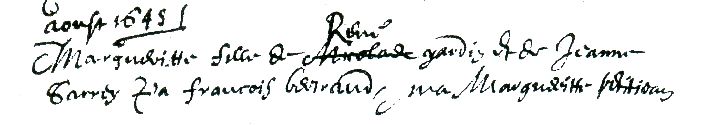 aoust 1645
René
Margueritte fille de Nicolas gardis et de Jeanne
Sarrez Pa francois bertrand, ma Margueritte petitjean